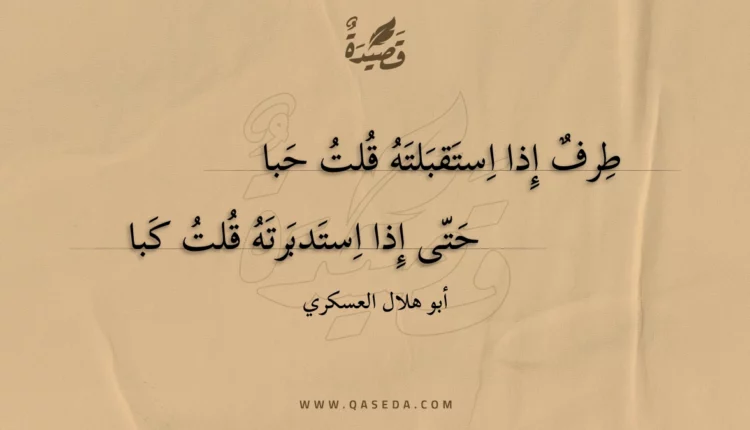 قَصِيدَةٌ
طِرفٌ إِذا اِستَقبَلتَهُ قُلتُ حَبا
حَتّى إِذا اِستَدبَرتَهُ قُلتُ كَبا
أبو هلال العسكري
WWW.QASEDA.COM